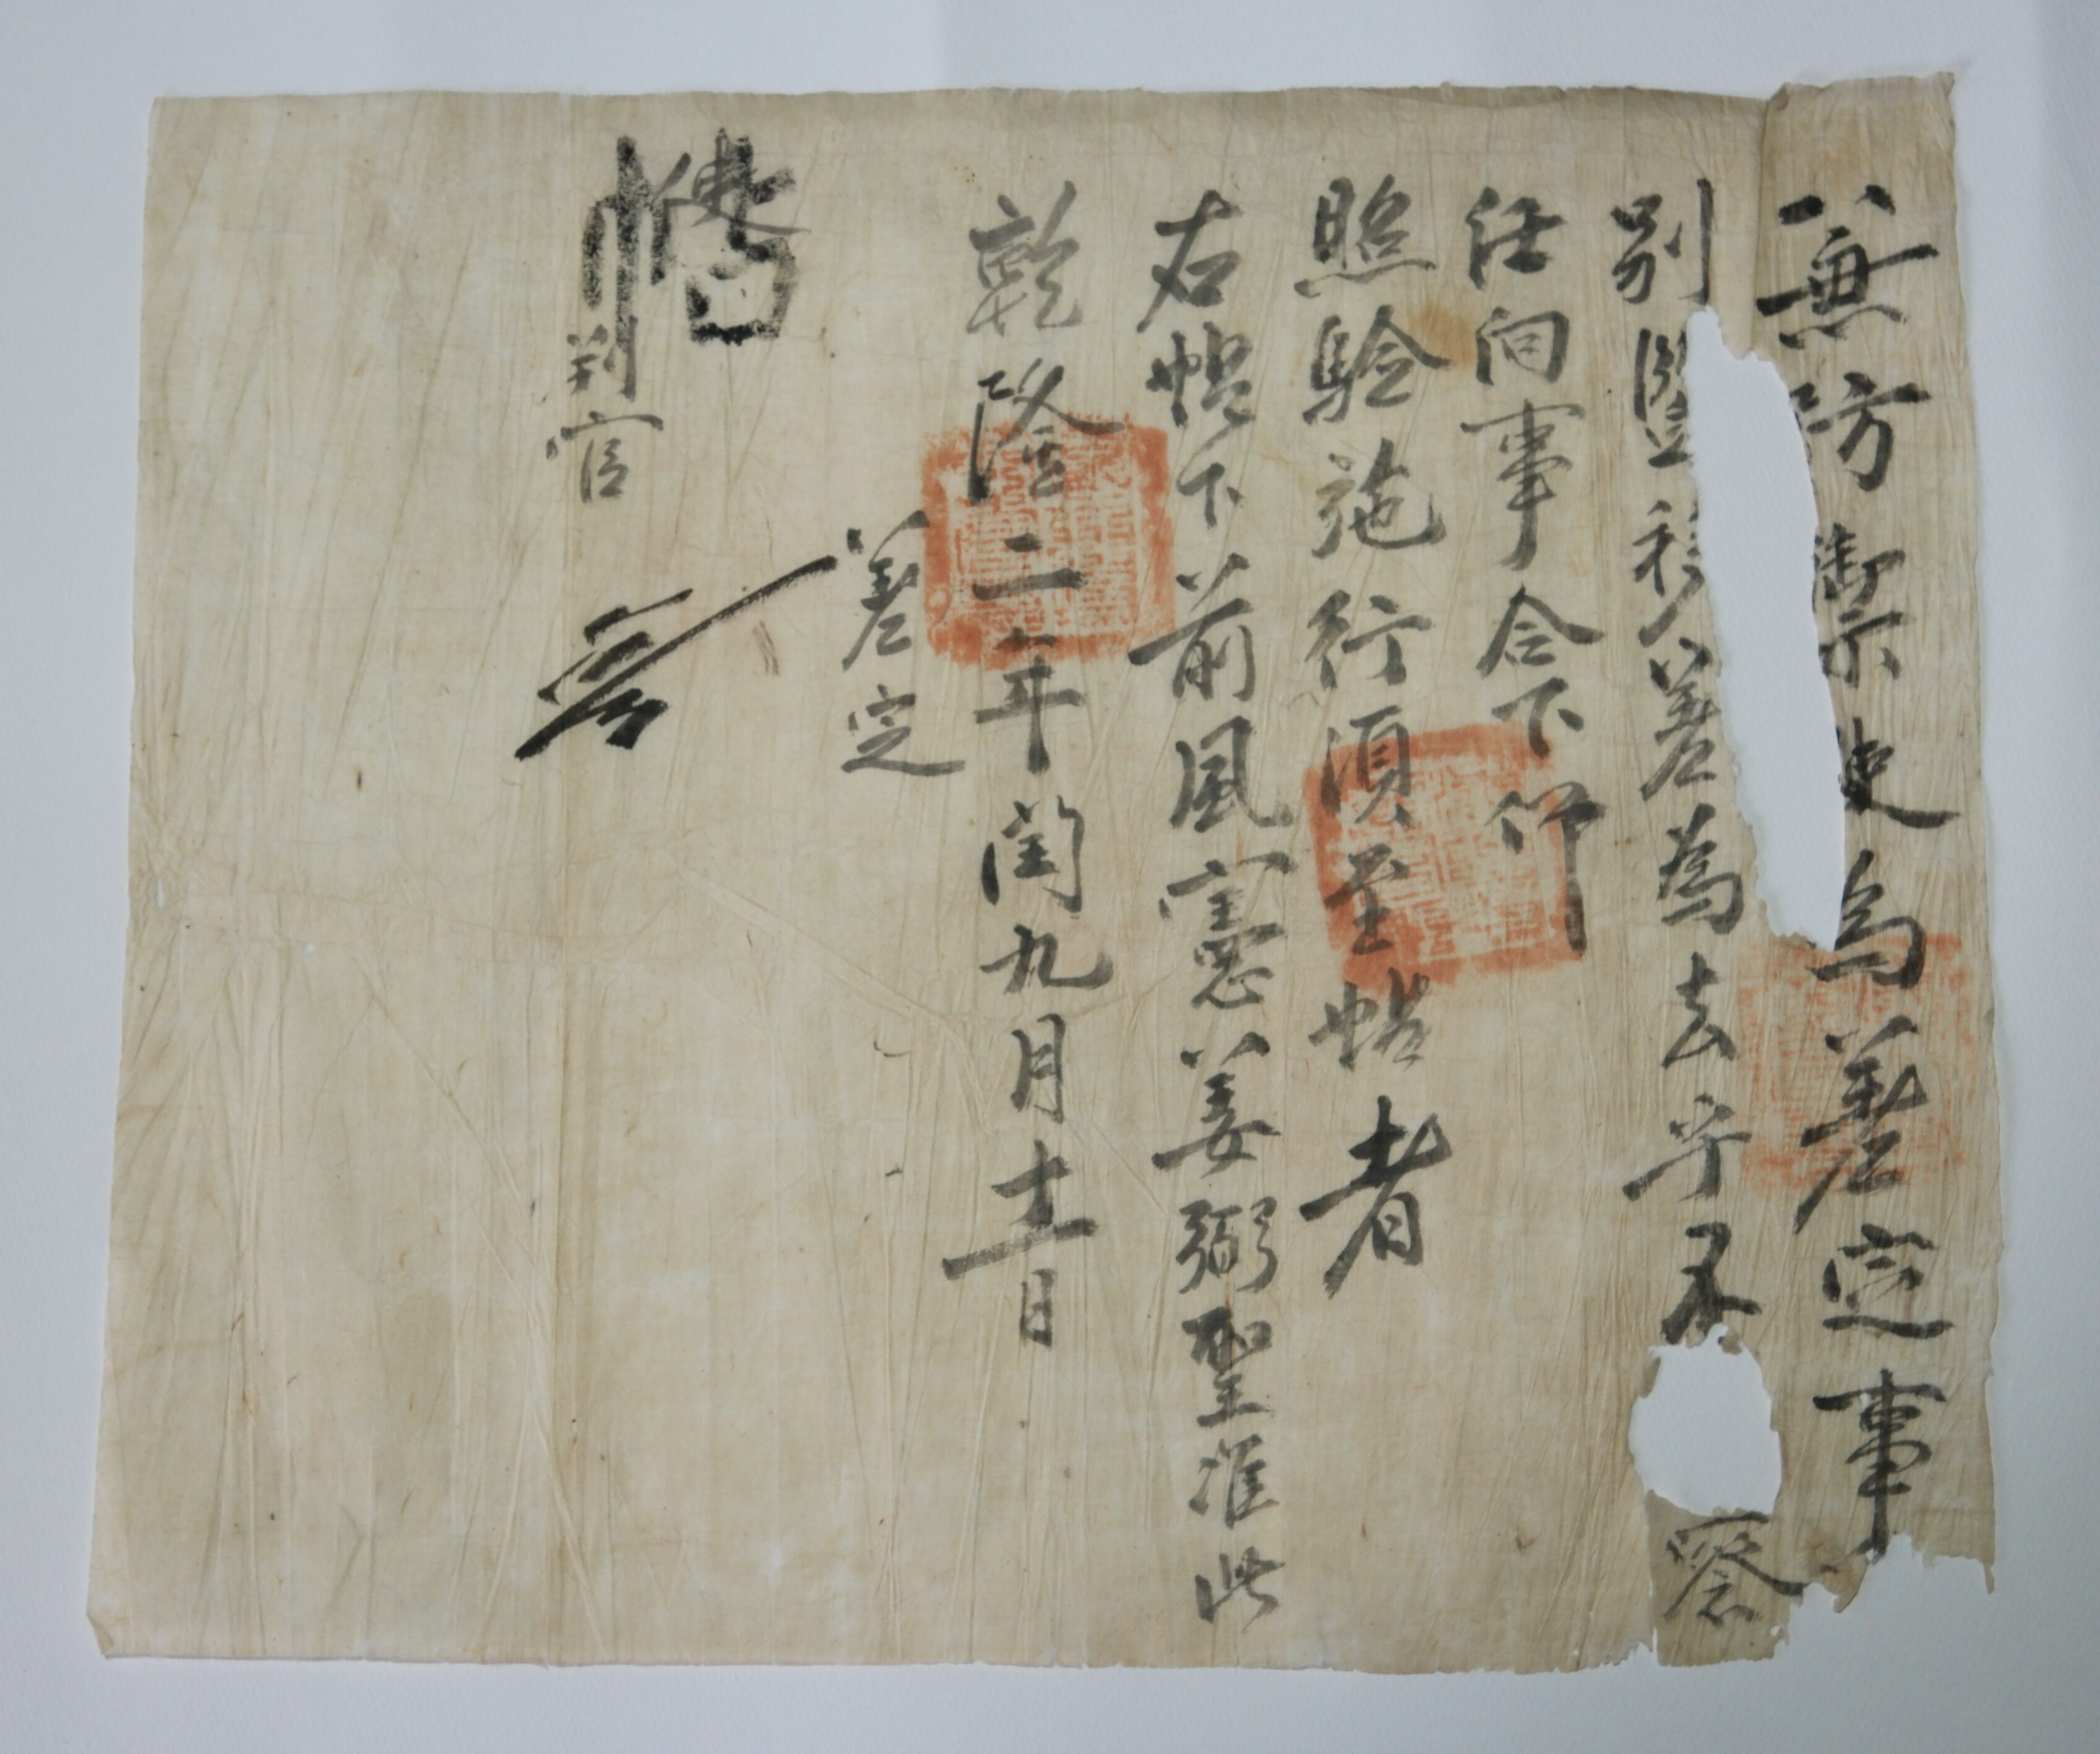 兼防禦使爲差定事
別監移差爲去乎不 察
任向事合下仰
照驗施行須至帖者
右帖下前風憲姜弼聖准此
乾隆二年閏九月十二日
差定
使
判官